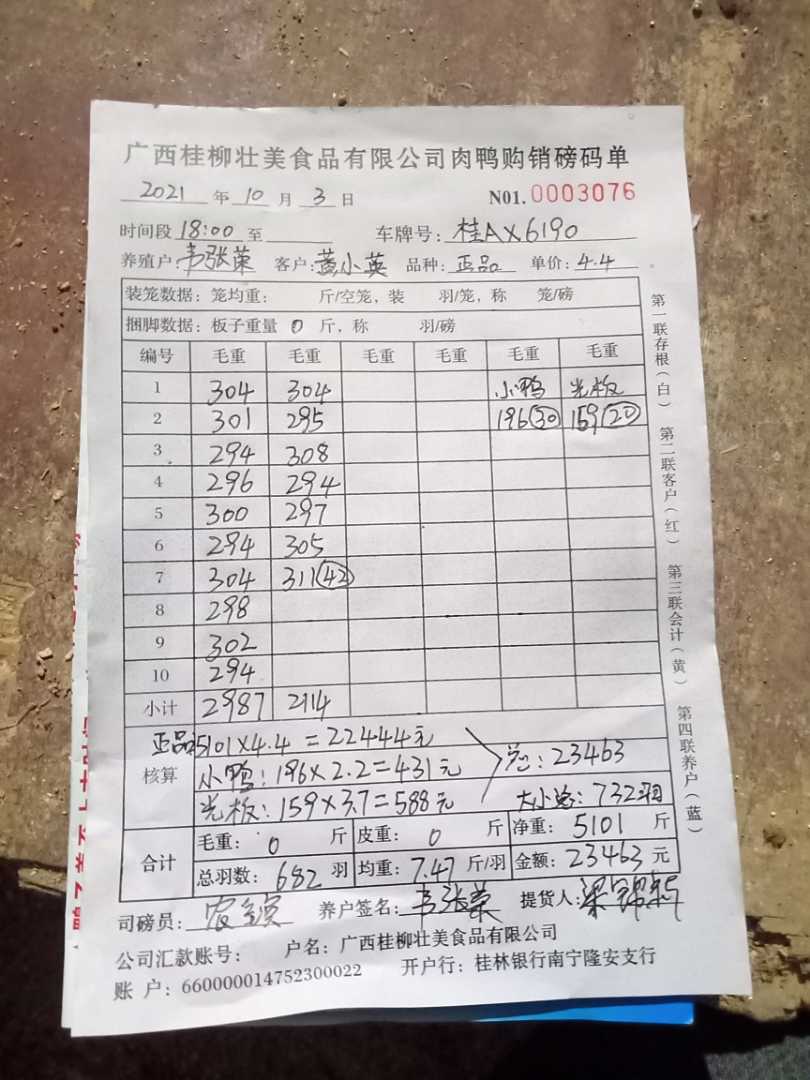 广西桂柳壮美食品有限公司肉鸭购销磅码单
2021 年 10 月 3 日 N01.0003076
时间段 18:00 至 车牌号: 桂AX6190
养殖户: 韦张荣 客户: 黄小英 品种: 正品 单价: 4.4
装笼数据: 笼均重: 斤/空笼, 装 羽/笼, 称 笼/磅
捆脚数据: 板子重量 0 斤, 称 羽/磅
编号 毛重 毛重 毛重 毛重 毛重 毛重
1 304 304 小鸭 光板
2 301 295 196(30) 159(20)
3 294 308
4 296 294
5 300 297
6 294 305
7 304 311(42)
8 298
9 302
10 294
小计 2987 2114
核算
正品 5101×4.4=22444元
小鸭: 196×2.2=431元 总: 23463
光板: 159×3.7=588元 大小总: 732羽
合计
毛重: 0 斤 皮重: 0 斤 净重: 5101 斤
总羽数: 682 羽 均重: 7.47 斤/羽 金额: 23463 元
司磅员: 养户签名: 韦张荣 提货人:
公司汇款账号: 户名: 广西桂柳壮美食品有限公司
账 户: 660000014752300022 开户行: 桂林银行南宁隆安支行
第一联存根(白) 第二联客户(红) 第三联会计(黄) 第四联养户(蓝)